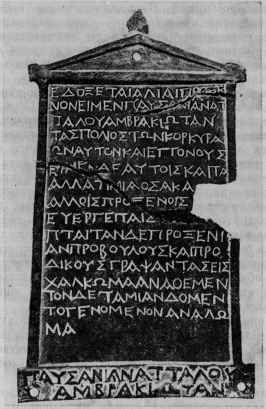 ΕΔΟΞΕΤΑΙΑΛΙΑΙΠΡΟΞΕ
ΝΟΝΕΙΜΕΝΠΑΥΣΑΝΙΑΝΑΤ
ΤΑΛΟΥΑΜΒΡΑΚΙΩΤΑΝ
ΤΑΣΠΟΛΙΟΣΤΩΝΚΟΡΚΥΡΑΙ
ΩΝΑΥΤΟΝΚΑΙΕΚΓΟΝΟΥΣ
ΕΙΜΕΝΔΕΑΥΤΟΙΣΚΑΙΤΑ
ΑΛΛΑΤΙΜΙΑΟΣΑΚΑ
ΑΛΛΟΙΣΠΡΟΞΕΝΟΙΣ
ΕΥΕΡΓΕΤΑΙΣ
ΠΤΑΙΤΑΝΔΕΠΡΟΞΕΝΙ
ΑΝΠΡΟΒΟΥΛΟΥΣΚΑΙΠΡΟ
ΔΙΚΟΥΣΓΡΑΨΑΝΤΑΣΕΙΣ
ΧΑΛΚΩΜΑΑΝΑΘΕΜΕΝ
ΤΟΝΔΕΤΑΜΙΑΝΔΟΜΕΝ
ΤΟΓΕΝΟΜΕΝΟΝΑΝΑΛΩ
ΜΑ
ΠΑΥΣΑΝΙΑΝΑΤΤΑΛΟΥ
ΑΜΒΡΑΚΙΩΤΑΝ